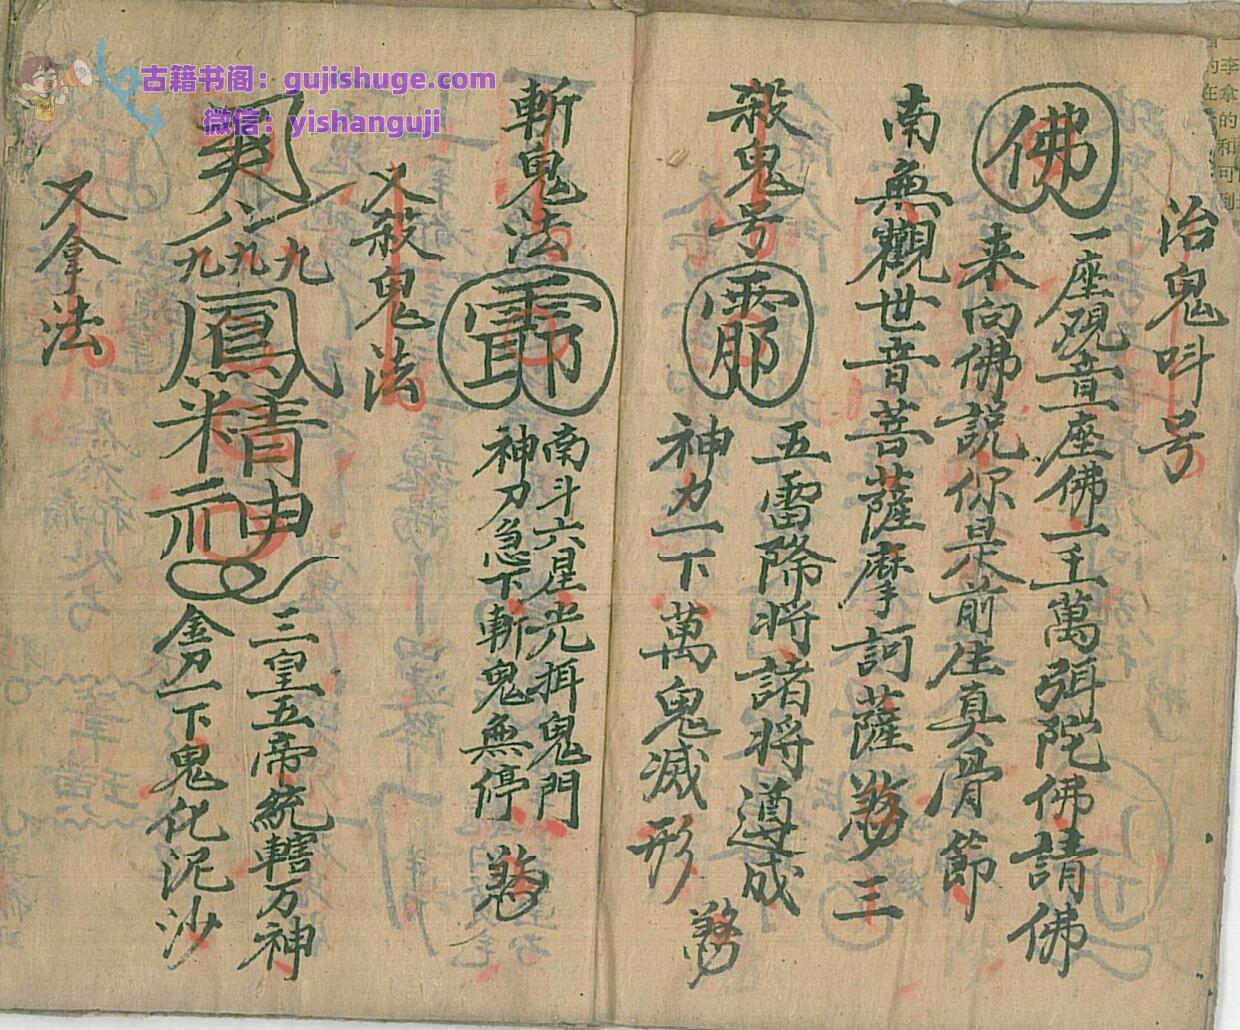 古籍书阁：gujishuge.com
微信：yishanguji
治鬼呌号
佛
一座观音一座佛一千萬弭陀佛請佛
来向佛説你是前生真骨節
南無觀世音菩薩摩訶薩 三
殺鬼号
五雷降将諸将遵成
神力一下萬鬼滅形
斬鬼法
南斗六星光揖鬼門
神刀急下斬鬼無停
又殺鬼法
八九九九
精神
三皇五帝統轄万神
金刀一下鬼化泥沙
又拿法